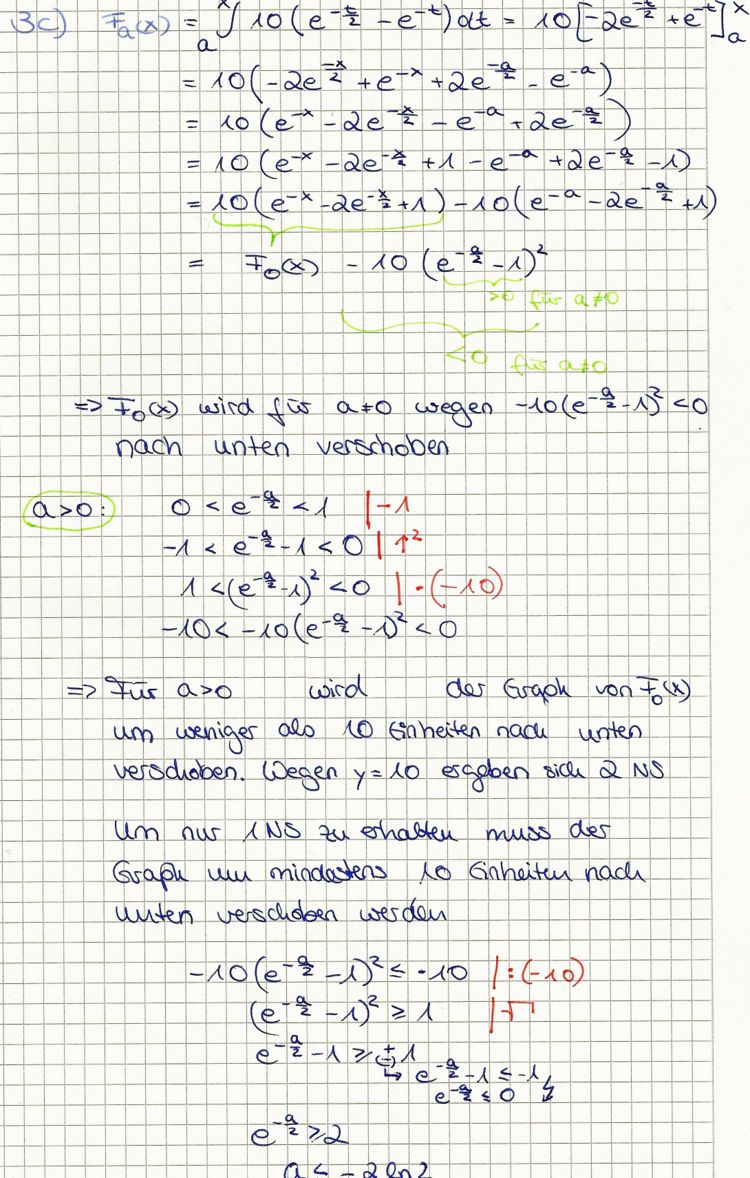 3c) F_a(x) = _a∫^x 10(e^{-t/2} - e^{-t})dt = 10[-2e^{-t/2} + e^{-t}]_a^x
= 10(-2e^{-x/2} + e^{-x} + 2e^{-a/2} - e^{-a})
= 10(e^{-x} - 2e^{-x/2} - e^{-a} + 2e^{-a/2})
= 10(e^{-x} - 2e^{-x/2} + 1 - e^{-a} + 2e^{-a/2} - 1)
= 10(e^{-x} - 2e^{-x/2} + 1) - 10(e^{-a} - 2e^{-a/2} + 1)
= F_0(x) - 10(e^{-a/2} - 1)^2
>0 für a≠0
<0 für a≠0
=> F_0(x) wird für a≠0 wegen -10(e^{-a/2} - 1)^2 < 0
nach unten verschoben
a>0: 0 < e^{-a/2} < 1 | -1
-1 < e^{-a/2} - 1 < 0 | ↑^2
1 < (e^{-a/2} - 1)^2 < 0 | ·(-10)
-10 < -10(e^{-a/2} - 1)^2 < 0
=> Für a>0 wird der Graph von F_0(x)
um weniger als 10 Einheiten nach unten
verschoben. Wegen y=10 ergeben sich 2 NS
Um nur 1 NS zu erhalten muss der
Graph um mindestens 10 Einheiten nach
unten verschoben werden
-10(e^{-a/2} - 1)^2 ≤ -10 | :(-10)
(e^{-a/2} - 1)^2 ≥ 1 | √
e^{-a/2} - 1 ≥ +(-) 1
↳ e^{-a/2} - 1 ≤ -1
e^{-a/2} ≤ 0 ↯
e^{-a/2} ≥ 2
a < -2 ln 2